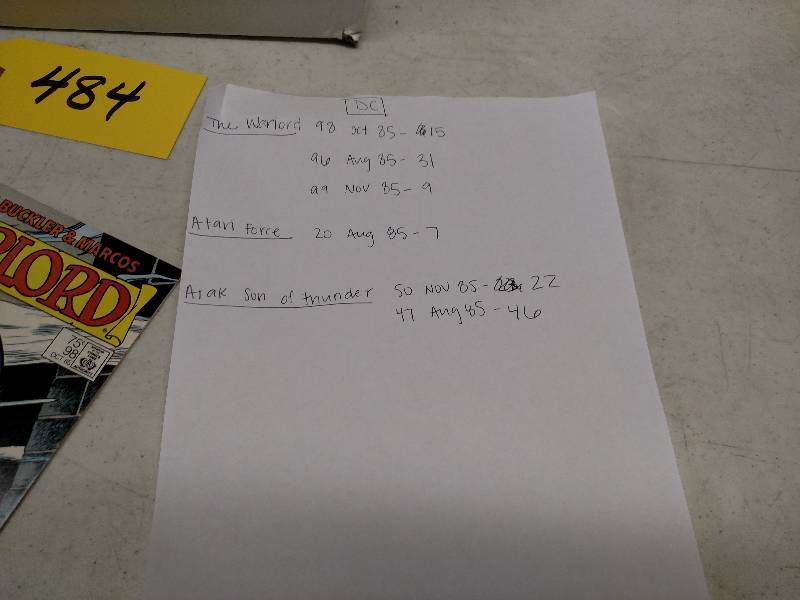 484
DC
The Warlord 98 Oct 85 - 15
96 Aug 85 - 31
99 Nov 85 - 9
Atari Force 20 Aug 85 - 7
Arak Son of thunder 50 Nov 85 - 22
47 Aug 85 - 46
BUCKLER & MARCOS
LORD!
75¢
98
OCT 85